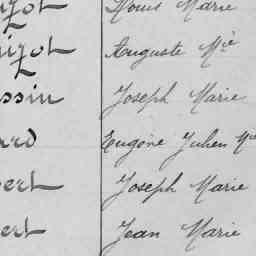 Louis Marie
Auguste Mie
ssin Joseph Marie
ard Eugène Julien Mie
bert Joseph Marie
bert Jean Marie